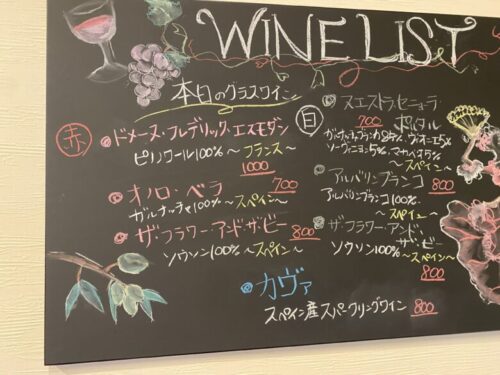 WINE LIST
本日のグラスワイン
赤
ドメーヌ・フレデリック・エスモダン
ピノワール100% 〜フランス〜
1000
オノロ・ベラ
700
ガルナッチャ100% 〜スペイン〜
ザ・フラワー・アンド・ザ・ビー
800
ソウソン100% 〜スペイン〜
白
ヌエストラ・セニョーラ
700
ポルタル
ソーヴィニョン5%、マカベオ5%
〜スペイン〜
アルバリンブランコ
800
アルバリンブランコ100%
〜スペイン〜
ザ・フラワー・アンド・
ザ・ビー
ソウソン100% 〜スペイン〜
800
カヴァ
スペイン産スパークリングワイン 800